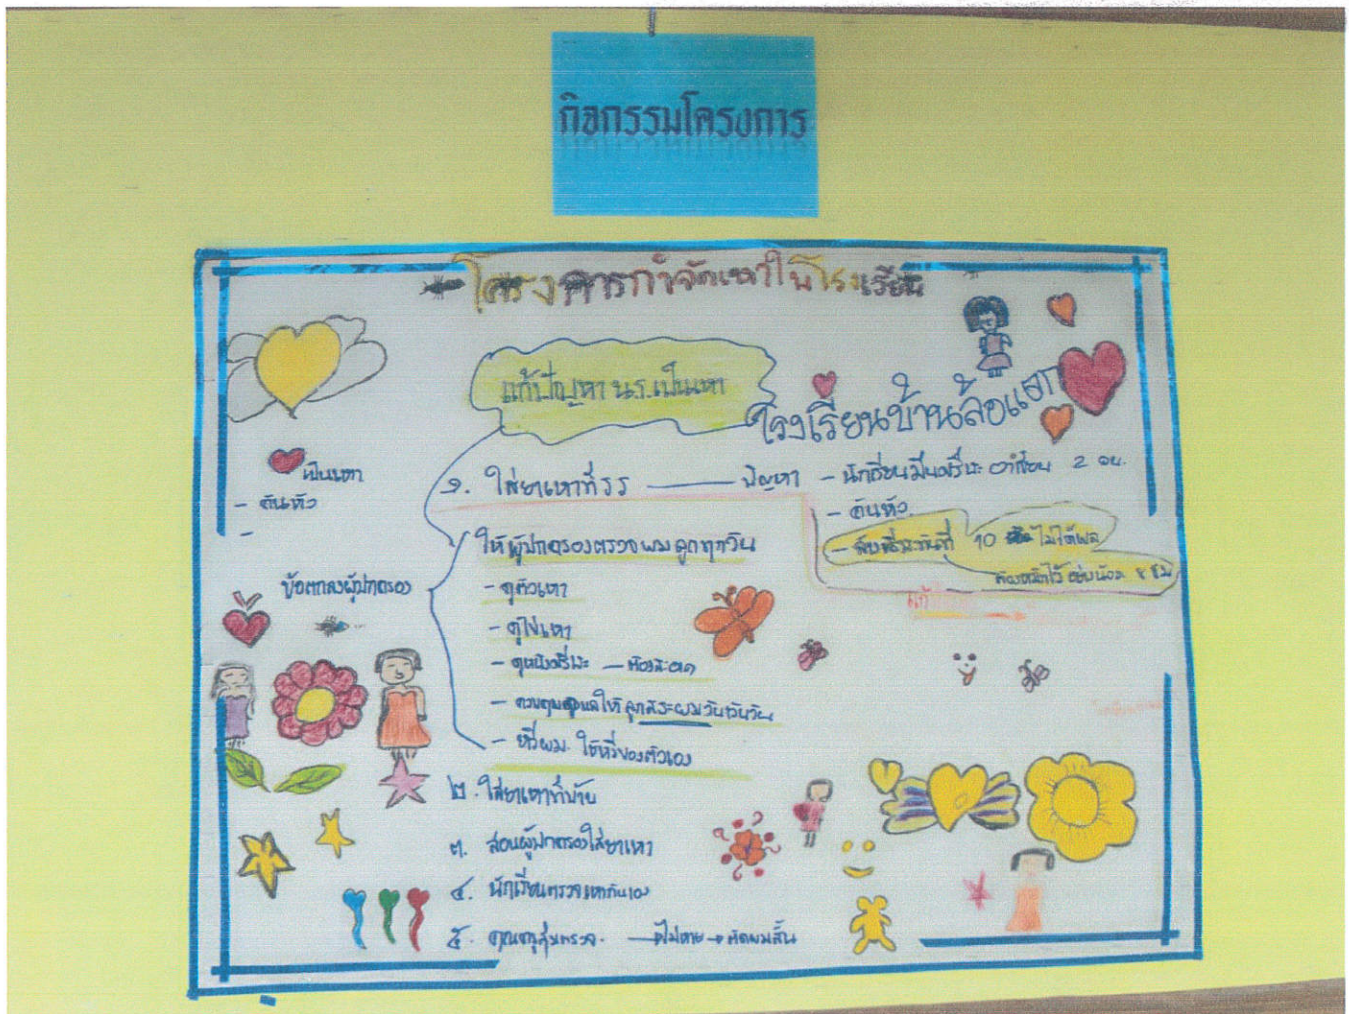 กิจกรรมโครงการ
โครงการกำจัดเหาในโรงเรียน
แก้ปัญหา น.ร.เป็นเหา
โรงเรียนบ้านล้อแอก
เป็นเหา
- คันหัว
-
๑. ใส่ยาเหาที่รร ปัญหา - นักเรียนมีแผลที่ศีรษะ
- คันหัว
10 ไม่ได้ผล
ต้องหมักไว้ อย่างน้อย ๘ ชม
แก้
ข้อตกลงผู้ปกครอง
ให้ผู้ปกครองตรวจผมลูกทุกวัน
- ดูตัวเหา
- ดูไข่เหา
- ดูหนังศรีษะ — ต้องสะอาด
- ควบคุมดูแลให้ลูกสระผมวันเว้นวัน
- หวีผม ใช้หวีของตัวเอง
๒. ใส่ยาเหาที่บ้าน
๓. สอนผู้ปกครองใส่ยาเหา
๔. นักเรียนตรวจเหากันเอง
๕. คุณครูสุ่มตรวจ. ไม่หาย → ตัดผมสั้น